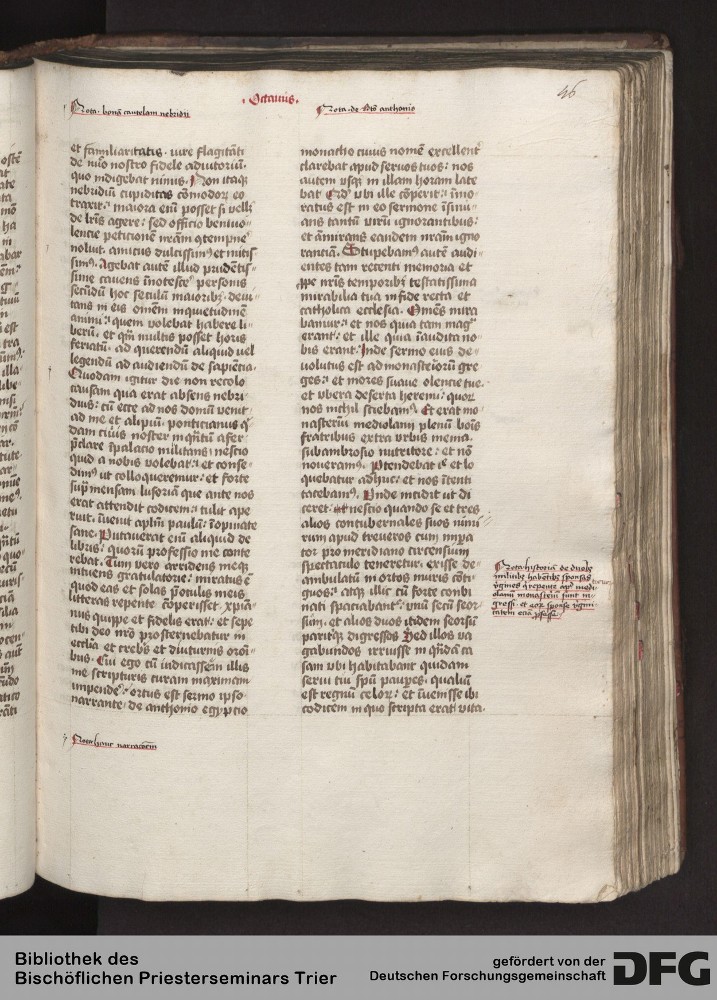 Octauus.
46
Nota. bonā cautelam nebridij
Nota. de scō anthonio
et familiaritatis. iure flagitāti
de nūo nostro fidele adiutoriū.
quo indigebat nimis. Non itaq;
nebridiū cupiditas cōmodorꝝ eo
traxit. maiora eiū posset si vellꝫ
de lrīs agere: sed officio beniuo-
lencie peticionē nrām ꝯtempnē
nolut. amicus dulcissimꝰ et mitis-
simꝰ. Agebat autē illud prudētis-
sime cauens īnotescē personis
secūdū hoc seculū maioribꝫ. deui-
tans in eis omēm inquietudinē
animi. quem volebat habere li-
berū. et qm̄ multis posset horis
feriatū. ad querendū aliquid vel
legendū ad audiendū de sapiētia.
Quodam igitur die non recolo
causam qua erat absens nebri-
dius: cū ecce ad nos domū venit
ad me et alipiū. ponticianus q̄-
dam ciuis noster inq̄ntū afer
p̄clare īpalacio militans. nescio
quid a nobis volebat: et conse-
dimꝰ ut colloqueremur. et forte
sup̄ mensam lusoriā que ante nos
erat attendit codicem: tulit ape-
ruit. īuenit aplm̄ paulū: īopinate
sane. Putauerat eiū aliquid de
libris. quorū professio me conte-
rebat. Tum vero arridens meqꝫ
intuens gratulatorie. miratus ē
quod eas et solas p̄ oculis meis
litteras repente cōperisset. xp̄ia-
nus quippe et fidelis erat: et sepe
tibi deo nrō prosternebatur in
ecclīa et crebīs et diuturnis orōi-
bus. Cui ego cū indicassem illis
me scripturis curam maximam
impendē. ortus est sermo ipso
narrante de anthonio egyptio
monacho cuius nomē excellent̄
clarebat apud seruos tuos: nos
autem vsqꝫ in illam horam late-
bat. Qd̄ vbi ille cōperit: īmo-
ratus est in eo sermone īsinu-
ans tantū virū ignorantibus:
et āmirans eandem nrām igno-
rantiā. Stupebamꝰ autē audi-
entes tam recenti memoria et
ꝓpe nrīs temporibꝫ testatissima
mirabilia tua in fide recta et
catholica ecclesia. Omēs mira-
bamur: et nos quia tam magᵃ
erant: et ille quia īaudita no-
bis erant. Inde sermo eius de-
volutus est ad monasteriorū gre-
ges: et mores suaue olencie tue.
et vbera deserta heremi: quorꝝ
nos nichil sciebamꝰ. Et erat mo-
nasteriū mediolani plenū boīs
fratribus extra vrbis menia.
sub ambrosio nutritore: et nō
noueramꝰ. Ptendebat ille et lo-
quebatur adhuc: et nos ītenti
tacebamꝰ. Vnde incidit ut di-
ceret nescio quando se et tres
alios contubernales suos nimi-
rum apud treueros cum impa-
tor pro meridiano circensium
spectaculo teneretur. exisse de-
ambulatū in ortos muris cōti-
guos: atqꝫ illic cū forte combi-
nati spaciabant: vnū secū seor-
sim. et alios duos itidem seorsū
paritqꝫ digressos. Sed illos va-
gabundos irruisse in q̄ndā ca-
sam vbi habitabant quidam
serui tui spū paupes. qualiū
est regnū celorꝝ: et īuenisse ibi
codicem in quo scripta erat vita.
Nota historiā de duobꝫ
militibꝫ habentibꝫ sponsas
vgines q̄ repente apd̄ medi-
olanū monasteriū sunt in-
gressi. et eorꝫ sponse vgini-
tatem eciā ꝓfesse
Nota hanc narracōem
Bibliothek des
Bischöflichen Priesterseminars Trier
gefördert von der
Deutschen Forschungsgemeinschaft
DFG